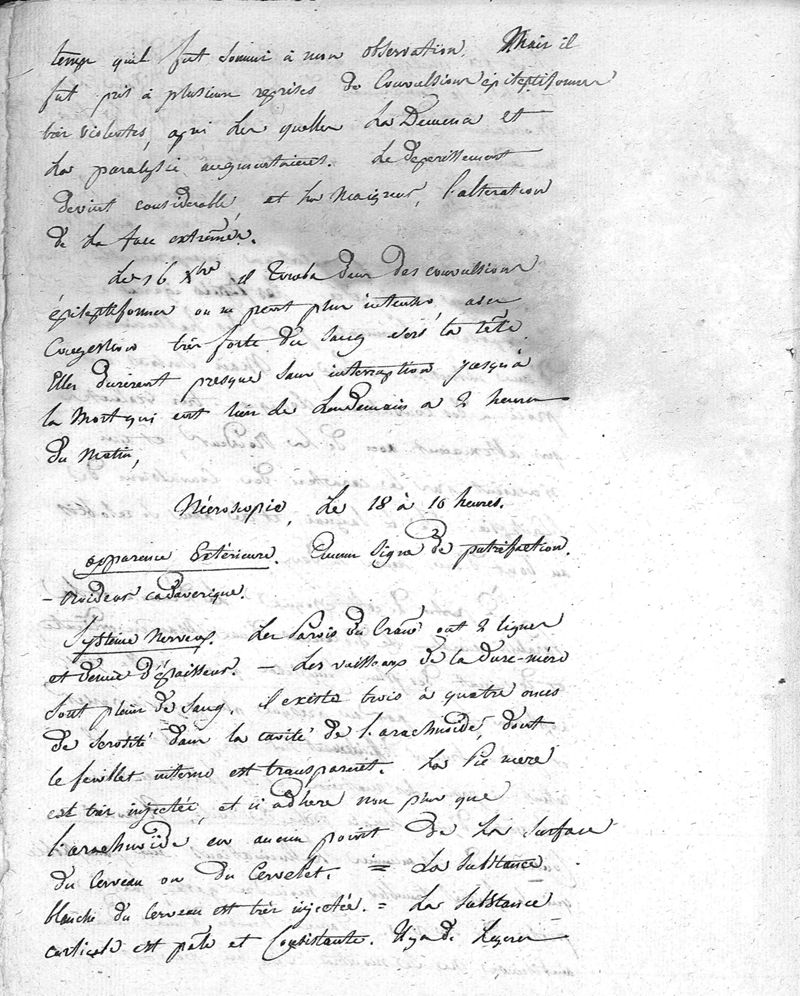 temps qu'il fut soumis à mon observation. Mais il
fut pris à plusieurs reprises de Convulsions épileptiformes
très violentes, après les quelles la Démence et
la paralysie augmentaient. Le dépérissement
devint considérable et la maigreur, l'altération
de la face extrêmes.
Le 16 Xbre il tomba dans des convulsions
épileptiformes on ne peut plus intenses avec
Congestion très forte du Sang vers la tête.
Elles durèrent presque sans interruption jusqu'à
la Mort qui eut lieu le Lendemain à 2 heures
du Matin,
Nécroscopie, Le 18 à 10 heures.
apparence Extérieure. Aucun Signe de putréfaction.
– roideur cadavérique.
Système Nerveux. Les Parois du Crane ont 2 lignes
et demie d'épaisseur. – Les vaisseaux de la dure-mère
sont pleins de Sang. il existe trois à quatre onces
de serosité dans la cavité de l'arachnoïde, dont
le feuillet interne est transparent. La Pie mere
est très injectée, et n'adhere non plus que
l'arachnoïde en aucun point de la surface
du Cerveau ou du Cervelet. = La substance
blanche du Cerveau est très injectée. = La substance
corticale est pâle et Consistante. Il y a de Legeres